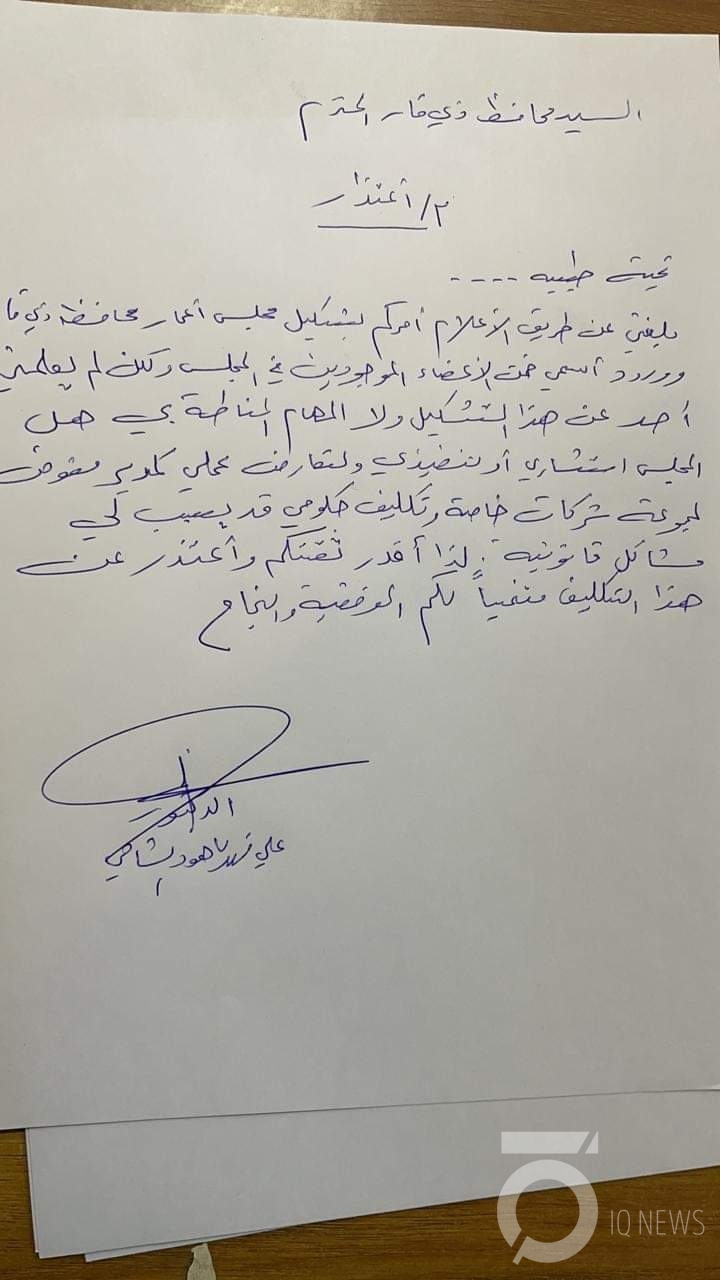 السيد محافظ ذي قار المحترم
م/ أعتذار
تحية طيبه ----
بلغني عن طريق الأعلام أمركم بتشكيل مجلس أعمار محافظة ذي قا
وورود أسمي ضمن الأعضاء الموجودين في المجلس ولكن لم يعلمني
أحد عن هذا التشكيل ولا المهام المناطة بي هل
المجلس استشاري أو تنفيذي ولتعارض عملي كمدير مفوض
لمجموعة شركات خاصة وتكليف حكومي قد يسبب لي
مشاكل قانونية . لذا أقدر ثقتكم وأعتذر عن
هذا التكليف متمنياً لكم الموفقية والنجاح
الدكتور
علي فهد
IQ NEWS